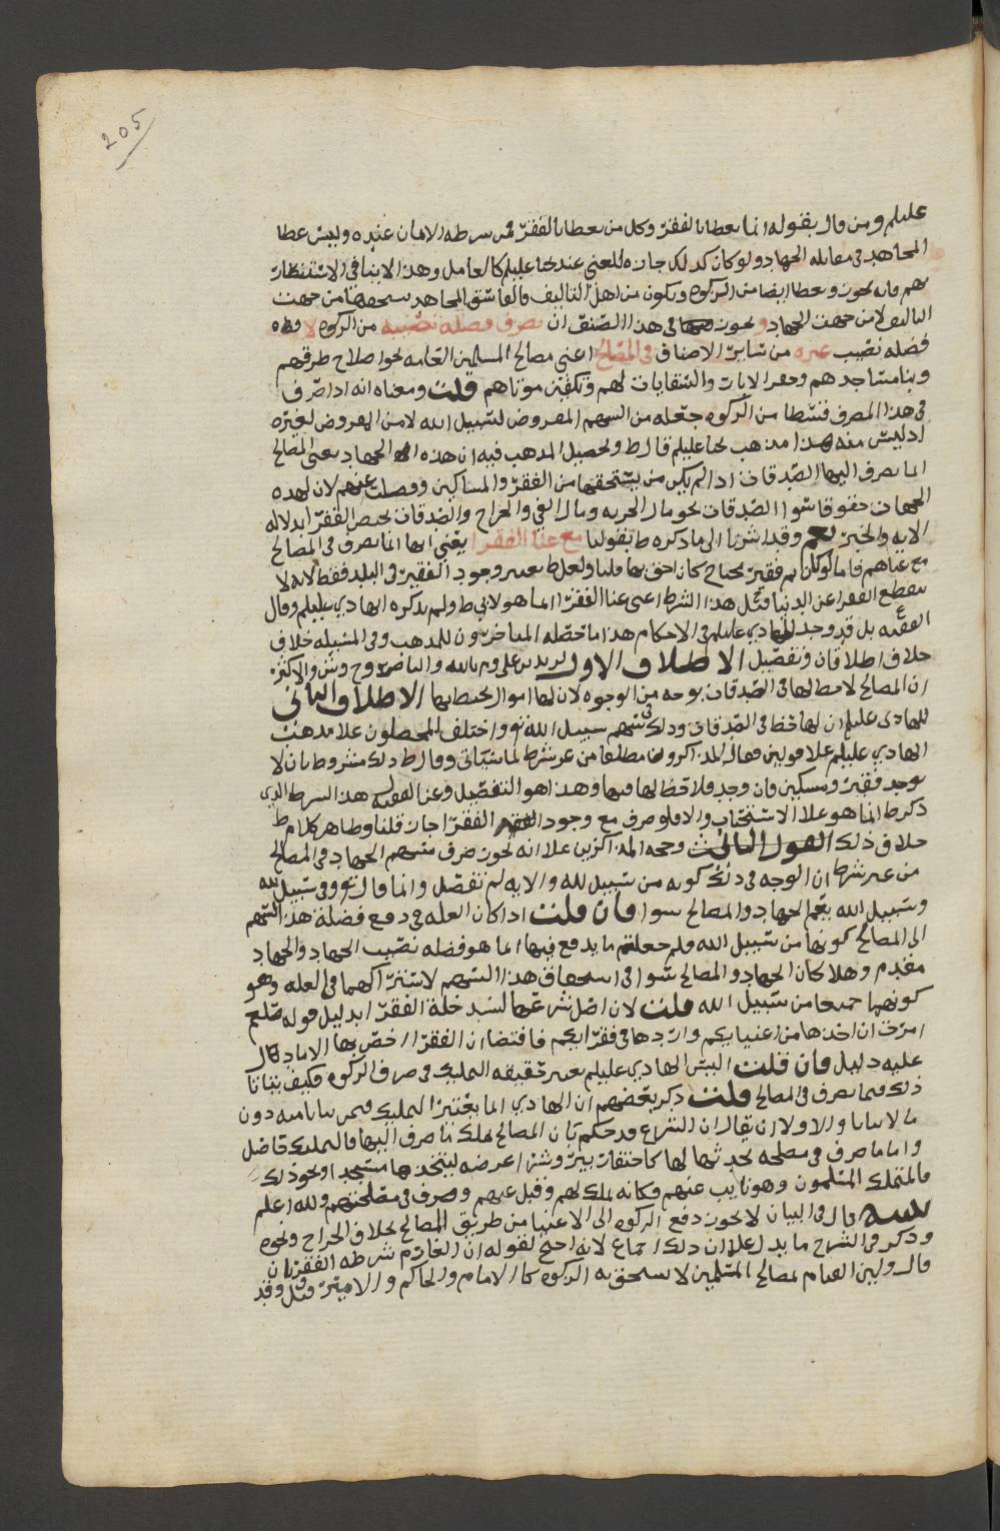 205
عليلم ومن قال بقوله انما يعطا بالفقر وكل من يعطا بالفقر فمن شرطه الايمان عنده وليس عطا
المجاهد في مقابله الجهاد ولو كان كذلك جاز للغني عند يحيا عليلم كالعامل وهذا لاينافي الاستنظار
بهم فانه يجوز ويعطا ايضا من الزكوه ويكون من اهل التاليف والفاسق المجاهد يستحقها من جهت
التاليف لا من جهت الجهاد ويجوز في هذا الصنف ان تصرف فضلة نصيبه من الزكوه لا
فضله نصيب غيره من سائر الاصناف في المصالح اعني مصالح المسلمين العامه نحو اصلاح طرقهم
وبنا مساجدهم وحفر الابار والسقايات لهم وتكفين موتاهم قلت ومعناه انه اذا صرف
في هذا المصرف قسطا من الزكوه جعله من السهم المفروض لسبيل الله لا من المفروض لغيره
اذ ليس منه هذا مذهب يحيا عليلم قال ط وتحصيل المذهب فيه ان هذه الجهاد يعني المصالح
انما يصرف اليها الصدقات اذا لم يكن من يستحقها من الفقر والمساكين وفضلت عنهم لان لهذه
الجهات حقوقا سوا الصدقات نحو مال الجزيه ومال الفي والخراج والصدقات تخص الفقرا بدلاله
الايه والخبر نعم وقد اشرنا الى ما ذكره ط بقولنا مع غنا الفقرا يعني انها انما تصرف في المصالح
مع غناهم فاما لو كان ثم فقير محتاج كان احق بها قلنا ولعل ط يعتبر وجود الفقير في البلد فقط لانه لا
ينقطع الفقرا عن الدنيا قيل هذا الشرط اعني غنا الفقرا انما هو لابي ط ولم يذكره الهادي عليلم وقال
الفقيه بل قد وجد للهادي عليلم في الاحكام هذا ما حصله المتاخرون للمذهب وفي المسئله خلاف
خلاف اطلاقان وتفصيل الاطلاق الاول لزيد بن علي وم بالله والناصر وح وش والاكثر
ان المصالح لا حظ لها في الصدقات بوجه من الوجوه لان لها اموال تختص بها الاطلاق الثاني
للهادي عليلم ان لها حظا في الصدقات وذلك في سهم سبيل الله واختلف المحصلون علا مذهب
الهادي عليلم علا قولين فقال المذاكرون مطلقا من غير شرط لما سياتي وقال ط ذلك مشروط بان لا
يوجد فقير ومسكين فان وجد فلا حظ لها فيها وهذا هو التفصيل وعن الفقيه هذا الشرط الذي
ذكره ط انما هو علا الاستحباب والا فلو صرف مع وجود الفقرا جاز قلنا وظاهر كلام ط
خلاف ذلك القول الثالث وحجه المذاكرين علا انه يجوز صرف سهم الجهاد في المصالح
من غير شرط ان الوجه في ذلك كونه من سبيل لله والايه لم تفصل وانما قال وفي سبيل لله
وسبيل الله يعم الجهاد والمصالح سوا فان قلت اذا كان العله في دفع فضلة هذا السهم
الى المصالح كونها من سبيل الله فلم جعلتم ما يدفع فيها انما هو فضله نصيب الجهاد والجهاد
مقدم وهلا كان الجهاد والمصالح سوا في استحقاق هذا السهم لاشتراكهما في العله وهو
كونهما جميعا من سبيل الله قلت لان اصل شرعها لسد خلة الفقرا بدليل قوله صلعم
امرت ان اخذها من اغنيايكم واردها في فقرايكم فاقتضا ان الفقرا اخص بها الا ما دل
عليه دليل فان قلت اليس الهادي عليلم يعتبر حقيقه التمليك في صرف الزكوه فكيف يتاتا
ذلك فيما يصرف في المصالح قلت ذكر بعضهم ان الهادي انما يعتبر التمليك فيمن يتاتا منه دون
ما لا يتاتا والاولا ان يقال ان الشرع قد حكم بان المصالح تملك ما صرف اليها فالتمليك حاصل
واما ما صرف في مصلحه تحدثها لها كاحتفار بير وشرا عرصه ليتخذها مسجد او نحو ذلك
فالمتملك المسلمون وهو نايب عنهم فكانه ملك لهم وقبل عنهم وصرف في مصلحتهم ولله اعلم
تنبيه قال في البيان لا يجوز دفع الزكوه الى الاغنيا من طريق المصالح بخلاف الخراج ونحوه
وذكر في الشرح ما يدل علا ان ذلك اجماع لانه احتج لقوله ان الغارم شرطه الفقر بان
قال وليس القيام لمصالح المسلمين لا يستحق به الزكوه كالامام والحاكم والامير قيل وقد